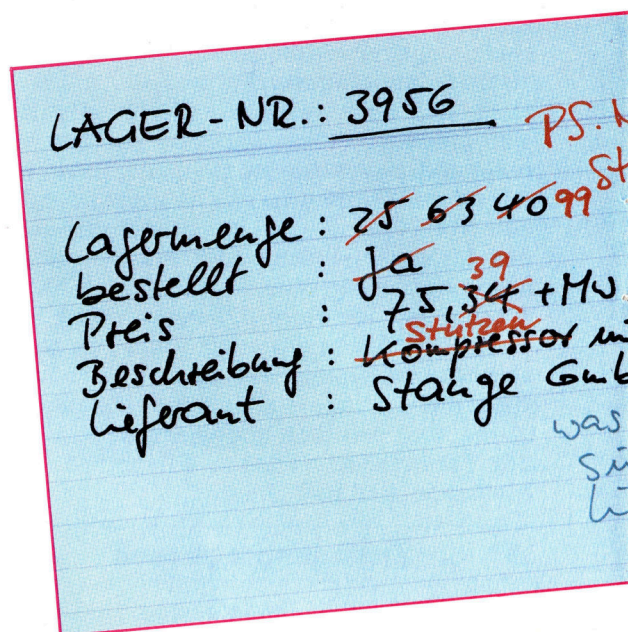 LAGER-NR.: 3956
PS.
Lagermenge : 25 63 40 99
bestellt : ja
39
Preis : 75,34 + Mw
Stützen
Beschreibung : Kompressor mi
Lieferant : Stange Gmb
was